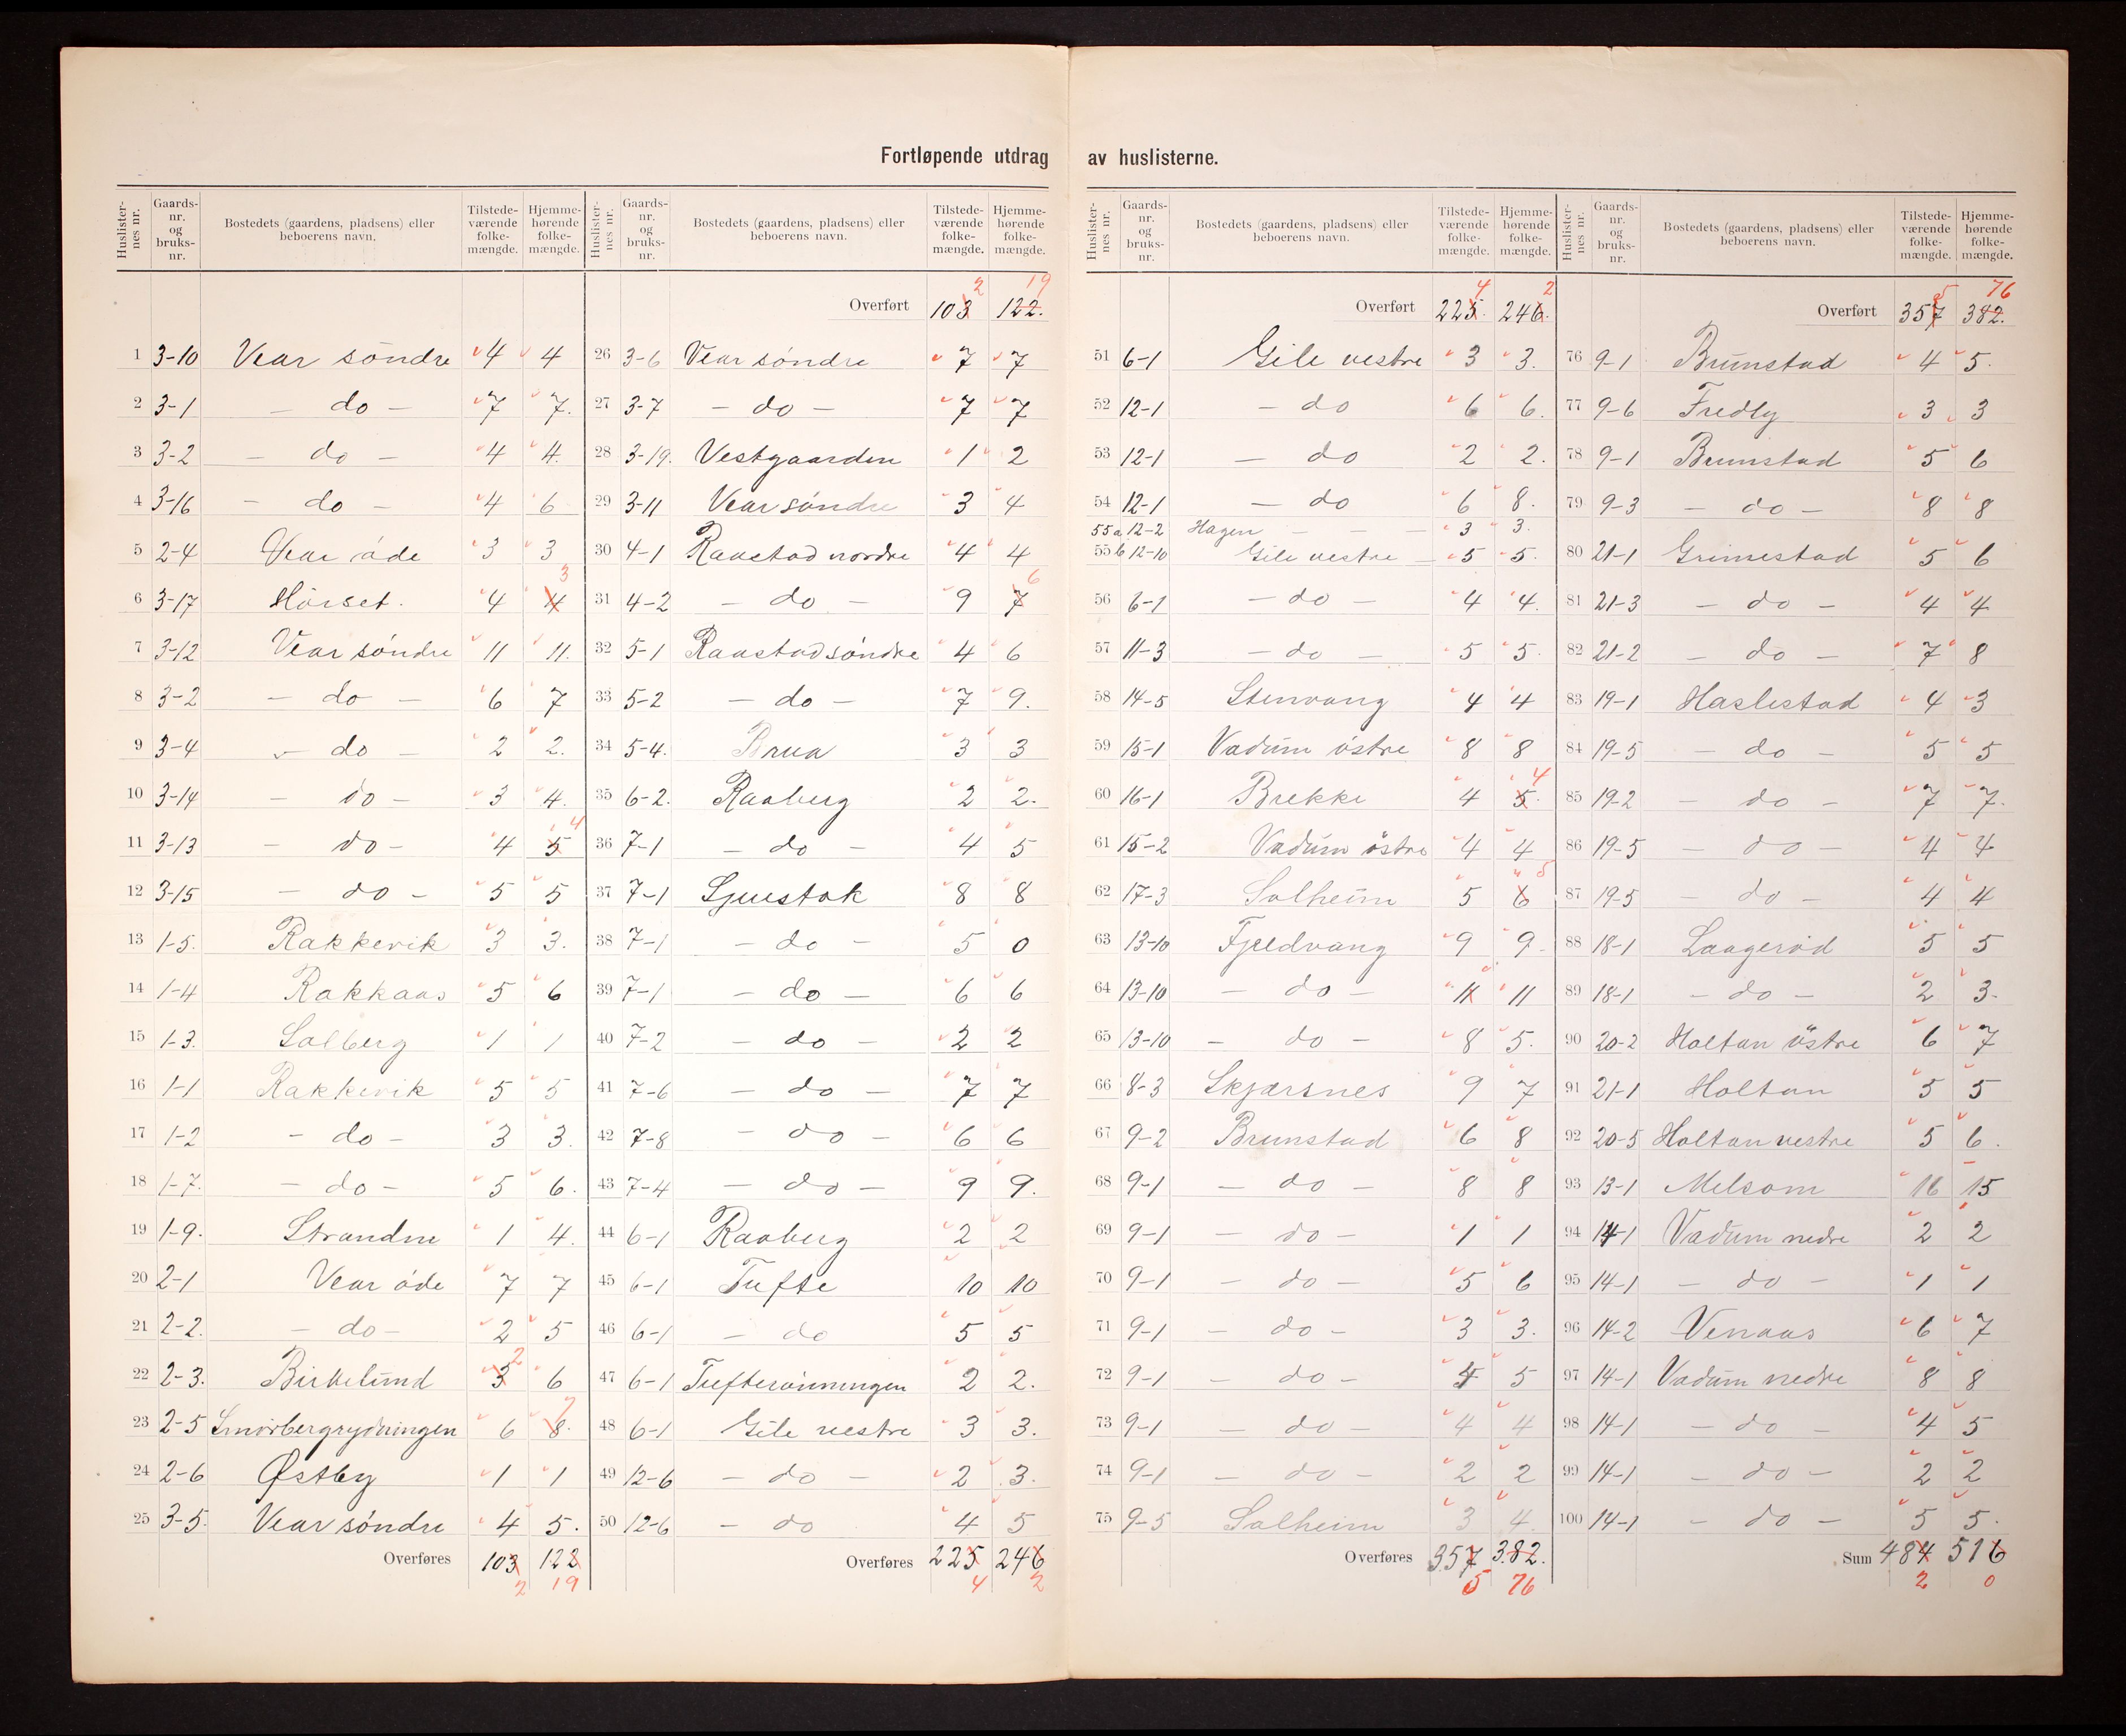 Fortløpende utdrag av huslisterne.
Huslisternes nr. Gaards-nr. og bruks-nr. Bostedets (gaardens, pladsens) eller beboerens navn. Tilstedeværende folkemængde. Hjemmehørende folkemængde.
1 3-10 Vear söndre 4 4
2 3-1 - do - 7 7.
3 3-2 - do - 4 4.
4 3-16 - do - 4 6
5 2-4 Vear øde 3 3
6 3-17 Hørset. 4 4 3
7 3-12 Vear søndre 11 11.
8 3-2 - do - 6 7
9 3-4 - do - 2 2.
10 3-14 - do - 3 4.
11 3-13 - do - 4 5 4
12 3-15 - do - 5 5
13 1-5. Rakkevik 3 3.
14 1-4 Rakkaas 5 6
15 1-3. Solberg 1 1
16 1-1 Rakkevik 5 5
17 1-2 - do - 3 3.
18 1-7. - do - 5 6.
19 1-9. Strandne 1 4.
20 2-1 Vear øde 7 7
21 2-2. - do - 2 5
22 2-3. Birkelund 3 2 6
23 2-5 Smørbergrydningen 6 8. 7
24 2-6 Østby 1 1
25 3-5. Vear søndre 4 5.
Overføres 103 122
2 19
Huslisternes nr. Gaards-nr. og bruks-nr. Bostedets (gaardens, pladsens) eller beboerens navn. Tilstedeværende folkemængde. Hjemmehørende folkemængde.
2 19
Overført 103 122.
26 3-6 Vear søndre 7 7
27 3-7 - do - 7 7
28 3-19. Vestgaarden 1 2
29 3-11 Vear søndre 3 4
30 4-1 Raastad nordre 4 4
31 4-2 - do - 9 7 6
32 5-1 Raastad søndre 4 6
33 5-2 - do - 7 9.
34 5-4. Brua 3 3
35 6-2. Raaberg 2 2.
36 7-1 - do - 4 5
37 7-1 Sjuestok 8 8
38 7-1 - do - 5 0
39 7-1 - do - 6 6
40 7-2 - do - 2 2
41 7-6 - do - 7 7
42 7-8 - do - 6 6
43 7-4 - do - 9 9.
44 6-1 Raaberg 2 2
45 6-1 Tufte 10 10
46 6-1 - do 5 5
47 6-1 Tufterönningen 2 2.
48 6-1 Gile vestre 3 3.
49 12-6 - do - 2 3.
50 12-6 - do 4 5
Overføres 225 246
4 2
Huslisternes nr. Gaards-nr. og bruks-nr. Bostedets (gaardens, pladsens) eller beboerens navn. Tilstedeværende folkemængde. Hjemmehørende folkemængde.
4 2
Overført 225. 246.
51 6-1 Gile vestre 3 3.
52 12-1 - do 6 6.
53 12-1 - do 2 2.
54 12-1 - do 6 8.
55 a 12-2 Hagen - - - 3 3.
55 b 12-10 Gile vestre - 5 5.
56 6-1 - do - 4 4.
57 11-3 - do - 5 5.
58 14-5 Stenvang 4 4
59 15-1 Vadum østre 8 8
60 16-1 Brekke 4 5. 4
61 15-2 Vadum östre 4 4
62 17-3 Solheim 5 6 5
63 13-10 Fjeldvang 9 9.
64 13-10 - do - 11 11
65 13-10 - do - 8 5.
66 8-3 Skjærsnes 9 7
67 9-2 Brunstad 6 8
68 9-1 - do - 8 8
69 9-1 - do - 1 1
70 9-1 - do - 5 6
71 9-1 - do - 3 3.
72 9-1 - do - 4 5
73 9-1 - do - 4 4
74 9-1 - do - 2 2
75 9-5 Solheim 3 4.
Overføres 357 382.
5 76
Huslisternes nr. Gaards-nr. og bruks-nr. Bostedets (gaardens, pladsens) eller beboerens navn. Tilstedeværende folkemængde. Hjemmehørende folkemængde.
5 76
Overført 357 382.
76 9-1 Brunstad 4 5.
77 9-6 Fredly 3 3
78 9-1 Brunstad 5 6
79 9-3 - do - 8 8
80 21-1 Grimestad 5 6
81 21-3 - do - 4 4
82 21-2 - do - 7 8
83 19-1 Haslestad 4 3
84 19-5 - do - 5 5
85 19-2 - do - 7 7.
86 19-5 - do - 4 4
87 19-5 - do - 4 4
88 18-1 Laagerød 5 5
89 18-1 - do - 2 3.
90 20-2 Holtan östre 6 7
91 21-1 Holtan 5 5
92 20-5 Holtan vestre 5 6.
93 13-1 Melsom 16 15
94 14-1 Vadum nedre 2 2
95 14-1 - do - 1 1
96 14-2 Venaas 6 7
97 14-1 Vadum nedre 8 8
98 14-1 - do - 4 5
99 14-1 - do - 2 2
100 14-1 - do - 5 5.
Sum 484 516
2 0